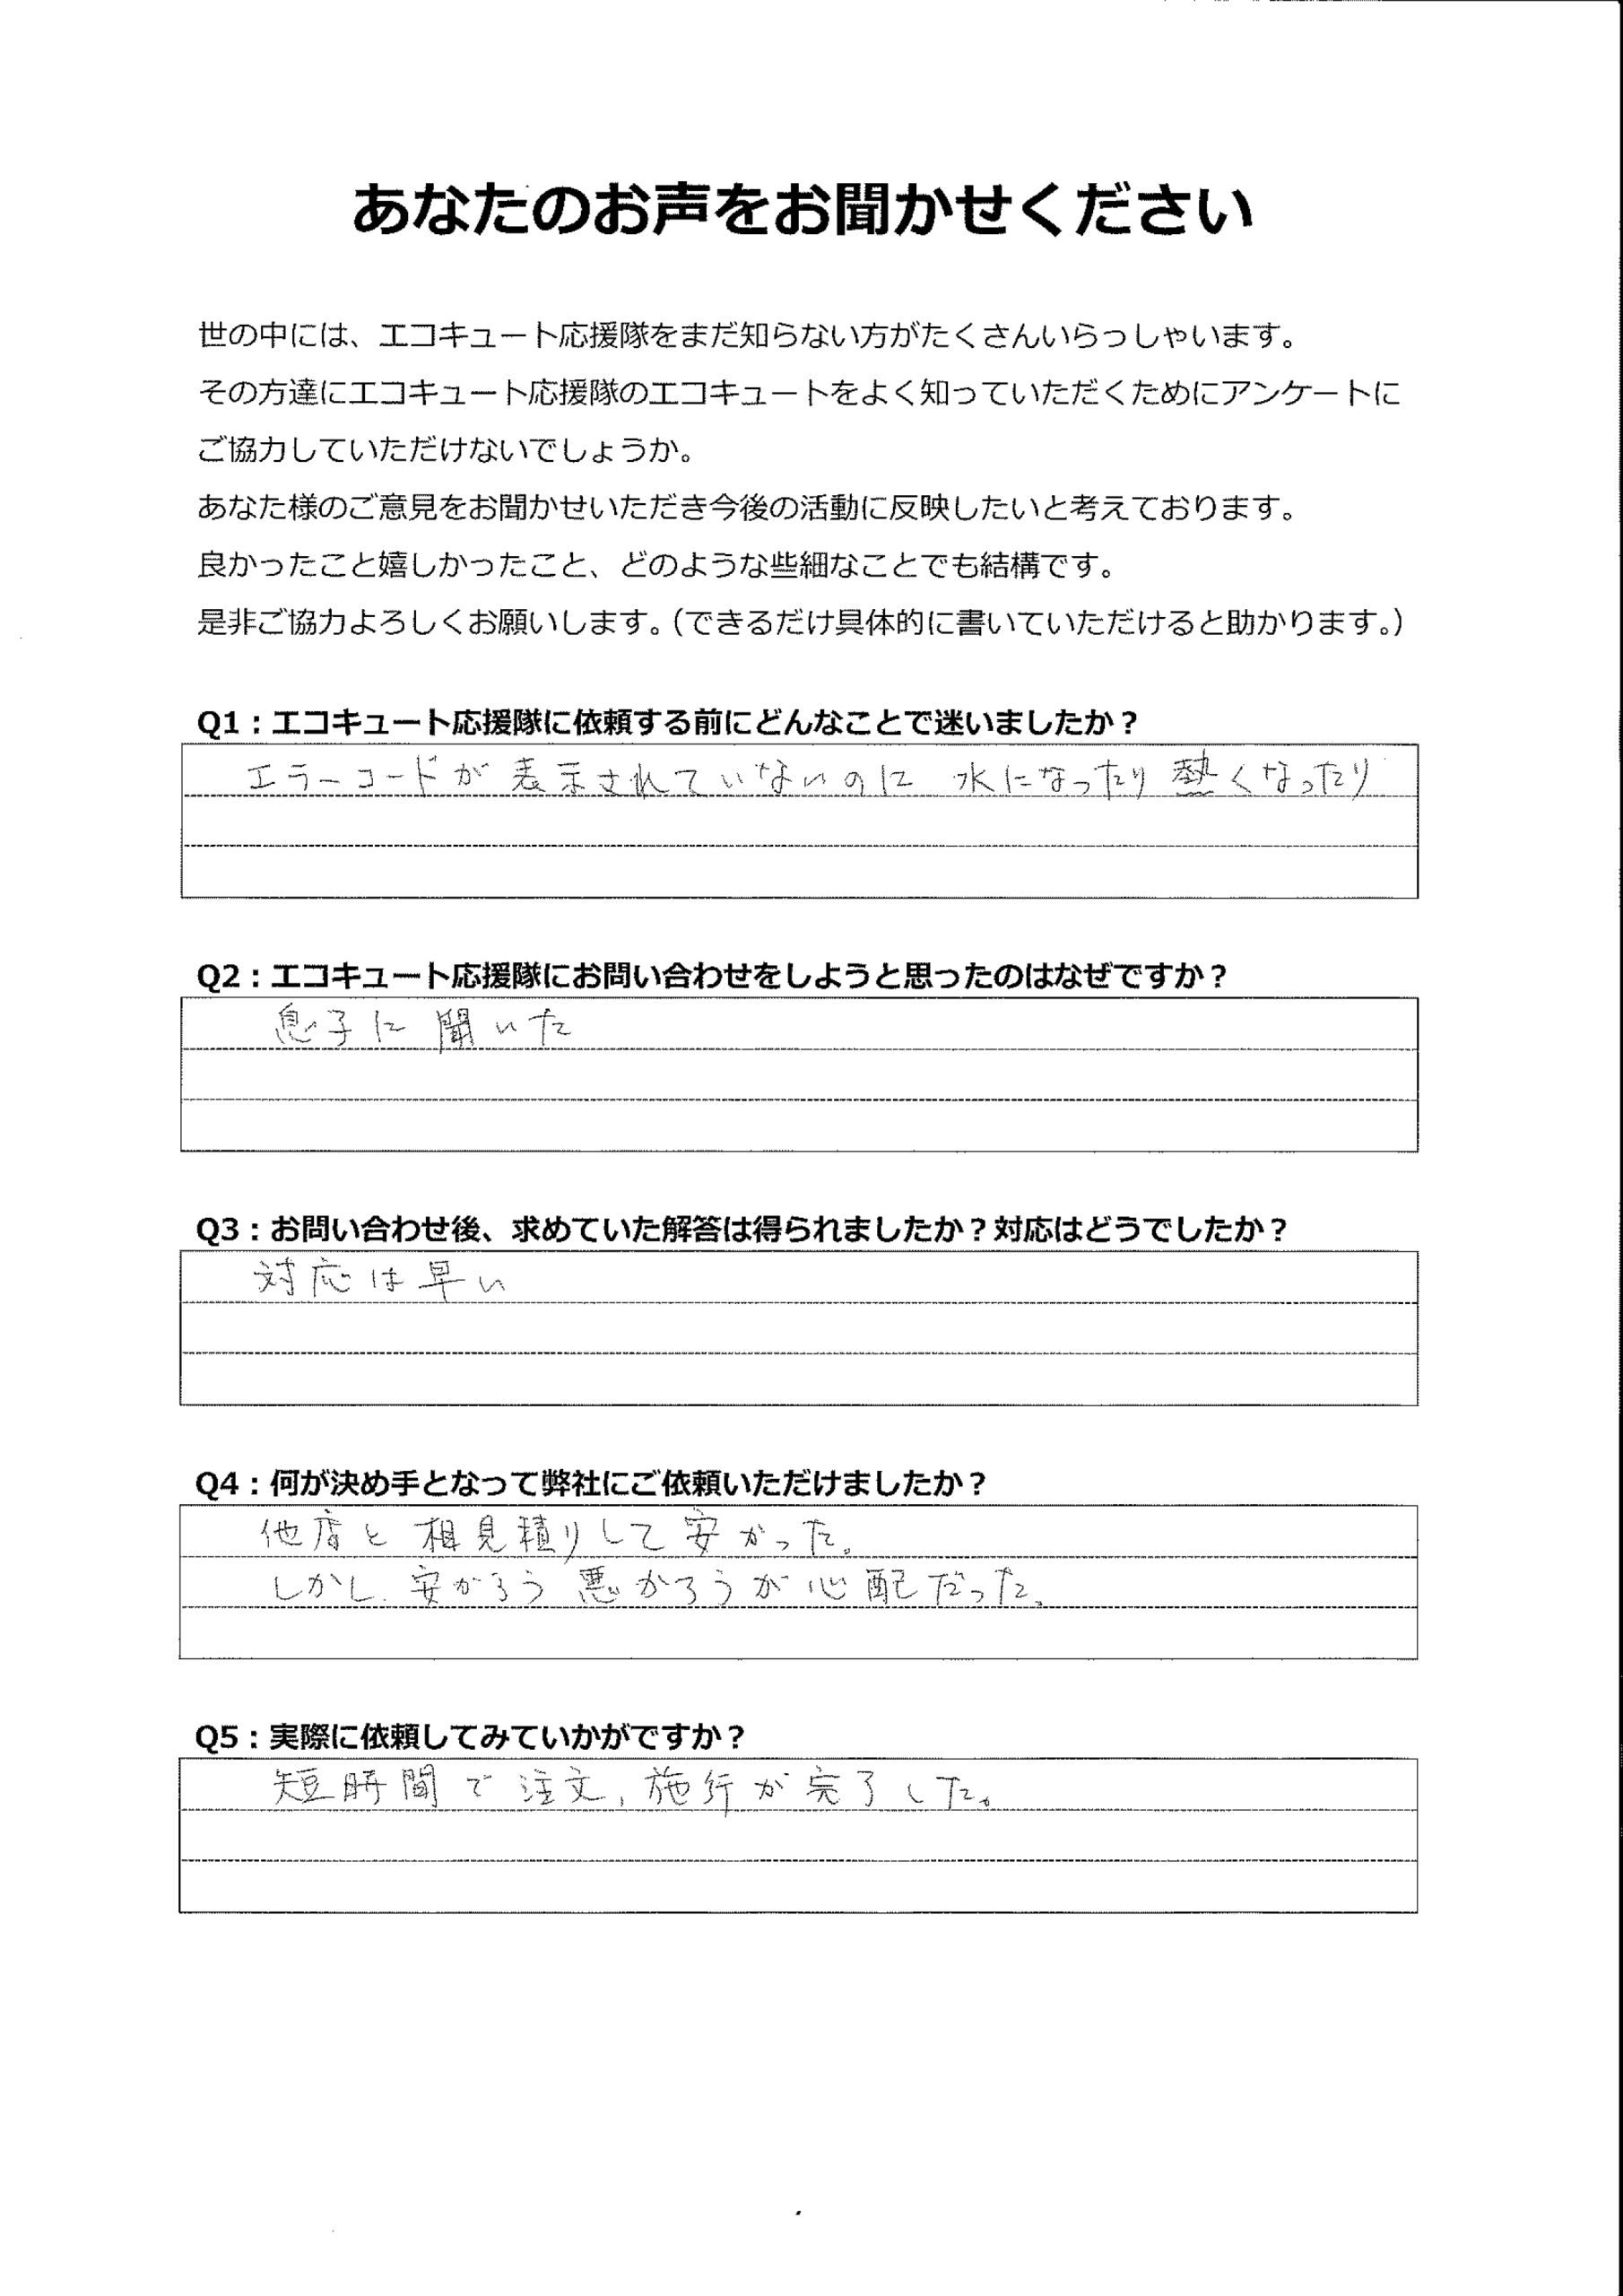 あなたのお声をお聞かせください
世の中には、エコキュート応援隊をまだ知らない方がたくさんいらっしゃいます。
その方達にエコキュート応援隊のエコキュートをよく知っていただくためにアンケートに
ご協力していただけないでしょうか。
あなた様のご意見をお聞かせいただき今後の活動に反映したいと考えております。
良かったこと嬉しかったこと、どのような些細なことでも結構です。
是非ご協力よろしくお願いします。（できるだけ具体的に書いていただけると助かります。）
Q1：エコキュート応援隊に依頼する前にどんなことで迷いましたか？
エラーコードが表示されていないのに 水になったり 熱くなったり
Q2：エコキュート応援隊にお問い合わせをしようと思ったのはなぜですか？
息子に聞いた
Q3：お問い合わせ後、求めていた解答は得られましたか？対応はどうでしたか？
対応は早い
Q4：何が決め手となって弊社にご依頼いただけましたか？
他店と相見積りして安かった。
しかし、安かろう悪かろうが心配だった。
Q5：実際に依頼してみていかがですか？
短時間で注文、施行が完了した。